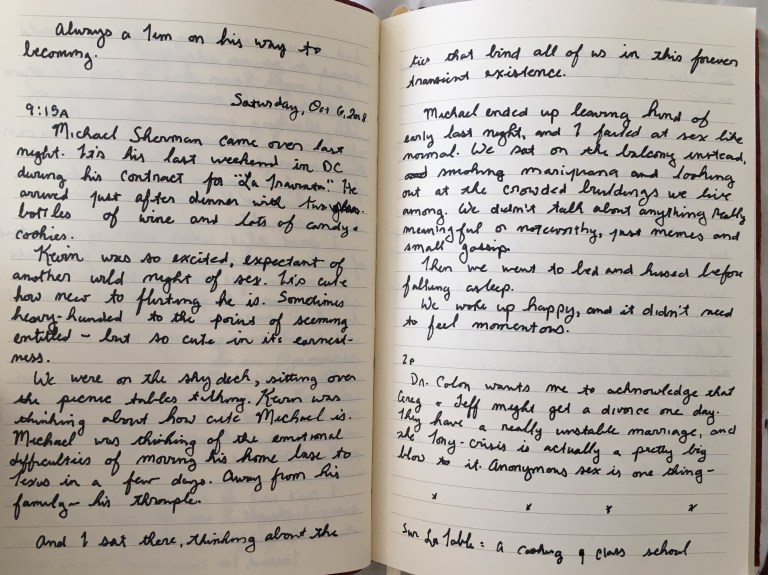 Always a 1em on his way to
becoming.
Saturday, Oct 6, 2018
9:15A
Michael Sherman came over last
night. It's his last weekend in DC
during his contract for "La Traviata." He
arrived just after dinner with two
bottles of wine and lots of candy &
cookies.
Kevin was so excited, expectant of
another wild night of sex. It's cute
how new to flirting he is. Sometimes
heavy-handed to the point of seeming
entitled – but so cute in its earnest-
ness.
We were on the sky deck, sitting over
the picnic tables talking. Kevin was
thinking about how cute Michael is.
Michael was thinking of the emotional
difficulties of moving his home base to
Texas in a few days. Away from his
family – his throuple.
And I sat there, thinking about the
ties that bind all of us in this forever
transient existence.
Michael ended up leaving kind of
early last night, and I failed at sex like
normal. We sat on the balcony instead,
smoking marijuana and looking
out at the crowded buildings we live
among. We didn't talk about anything really
meaningful or noteworthy, just memes and
small gossip.
Then we went to bed and kissed before
falling asleep.
We woke up happy, and it didn't need
to feel momentous.
2P
Dr. Colon wants me to acknowledge that
Greg & Jeff might get a divorce one day.
They have a really unstable marriage, and
the Tony-crisis is actually a pretty big
blow to it. Anonymous sex is one thing –
* * * *
Sur La Table: A cooking class school